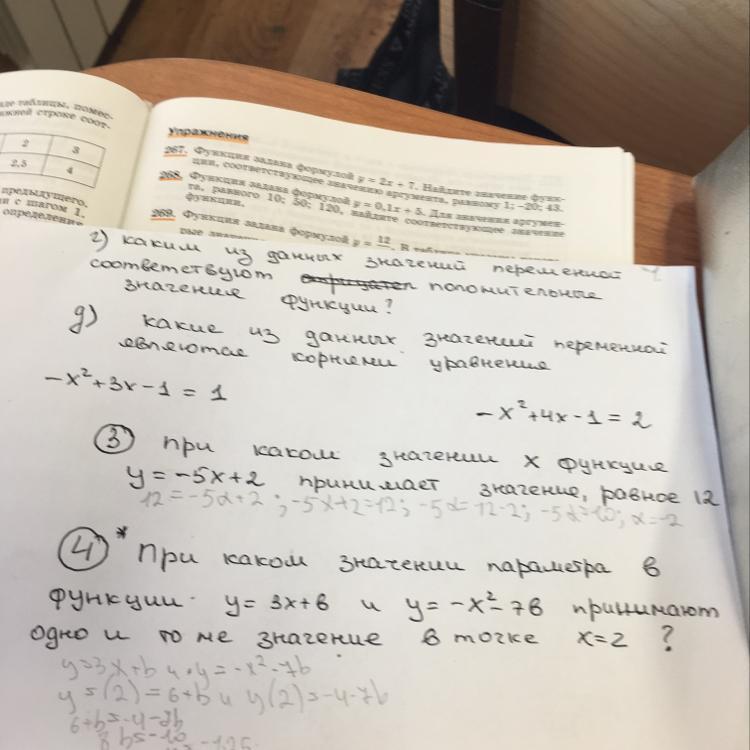 де таблицы, помес-
жней строке соот-
2 3
2,5 4
предыдущего,
и с шагом 1.
определение
Упражнения
267. Функция задана формулой y = 2x + 7. Найдите значение функ-
ции, соответствующее значению аргумента, равному 1; -20; 43.
268. Функция задана формулой y = 0,1x + 5. Для значения аргумен-
та, равного 10; 50; 120, найдите соответствующее значение
функции.
269. Функция задана формулой y = 12
г) каким из данных значений переменной
соответствуют положительные
значения функции?
д) какие из данных значений переменной
являются корнями уравнения
-x²+3x-1 = 1
-x²+4x-1 = 2
③ при каком значении x функция
y = -5x+2 принимает значение, равное 12
12 = -5x+2 ; -5x+2=12; -5x=12-2; -5x=10; x=-2
④* При каком значении параметра в
функции y= 3x+в и y= -x²-7в принимают
одно и то же значение в точке x=2 ?
y=3x+b и y=-x²-7b
y=(2)=6+b и y(2)=-4-7b
6+b=-4-7b
8b=-10